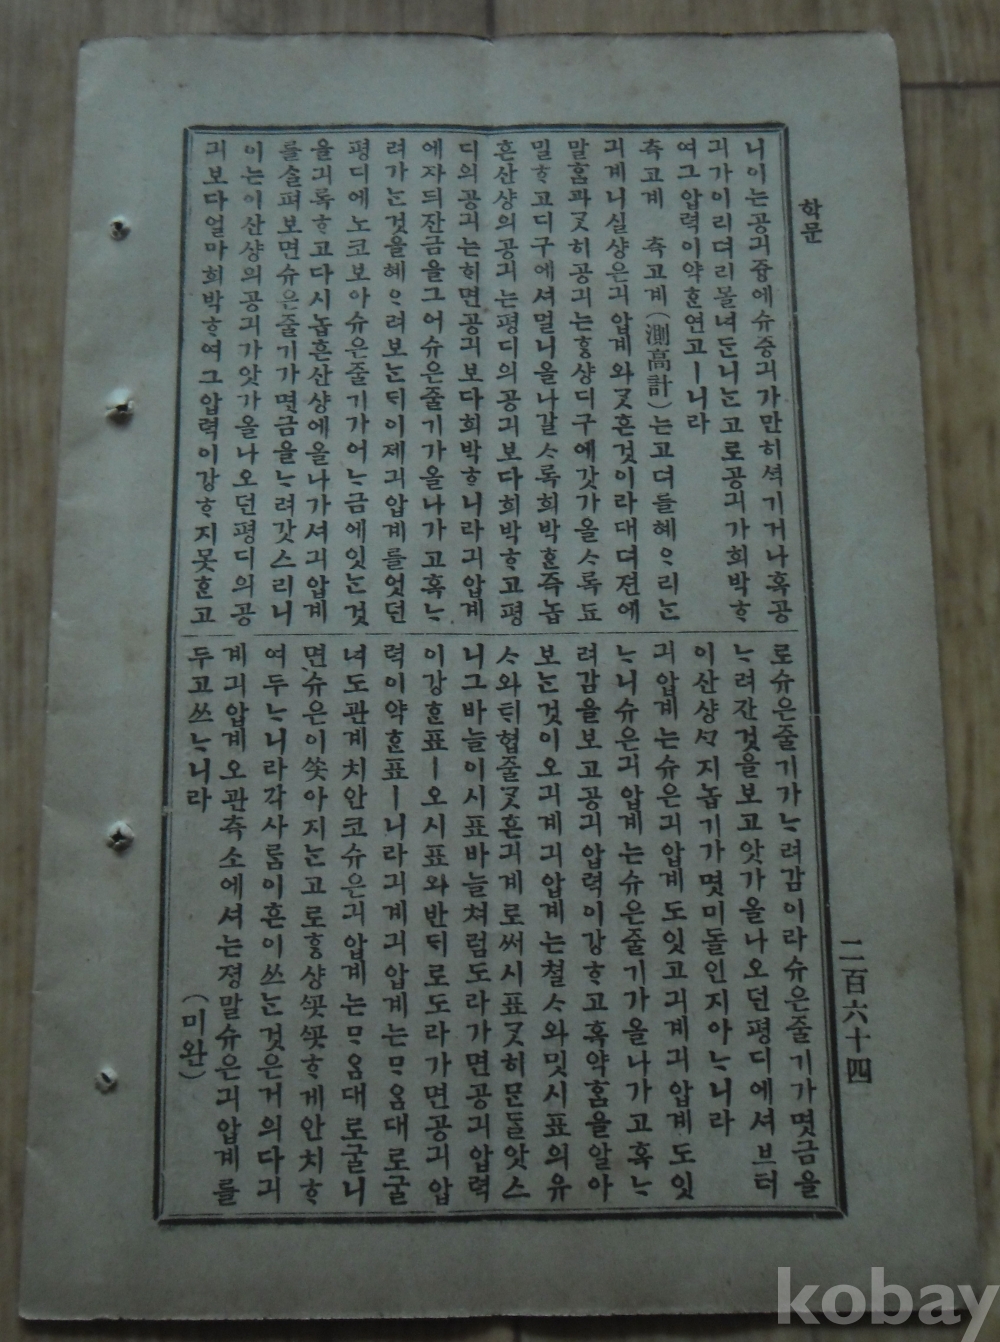 학문
니이는공긔즁에슈증긔가만히셕기거나혹공
긔가이리뎌리몰녀ᄃᆞᆫ니ᄂᆞᆫ고로공긔가희박ᄒᆞ
여그압력이약ᄒᆞᆫ연고ㅣ니라
측고계 측고계(測高計)는고뎌들혜ᄋᆞ리ᄂᆞᆫ
긔계니실샹은긔압계와ᄀᆞᆺᄒᆞᆫ것이라대뎌젼에
말ᄒᆞᆷ과ᄀᆞᆺ히공긔는ᄒᆞᆼ샹디구에갓가올ᄉᆞ록됴
밀ᄒᆞ고디구에셔멀니올나갈ᄉᆞ록희박ᄒᆞᆫ즉놉
흔산샹의공긔는평디의공긔보다희박ᄒᆞ고평
디의공긔는ᄒᆡ면공긔보다희박ᄒᆞ니라긔압계
에자듸잔금을그어슈은줄기가올나가고혹ᄂᆞ
려가ᄂᆞᆫ것을혜ᄋᆞ려보ᄂᆞᆫᄃᆡ이제긔압계를엇던
평디에노코보아슈은줄기가어ᄂᆞ금에잇ᄂᆞᆫ것
을긔록ᄒᆞ고다시놉흔산샹에올나가셔긔압계
를ᄉᆞᆯ펴보면슈은줄기가몃금을ᄂᆞ려갓스리니
이는이산샹의공긔가앗가올나오던평디의공
긔보다얼마희박ᄒᆞ여그압력이강ᄒᆞ지못ᄒᆞᆫ고
로슈은줄기가ᄂᆞ려감이라슈은줄기가몃금을
ᄂᆞ려잔것을보고앗가올나오던평디에셔브터
이산샹ᄭᆞ지놉기가몃미돌인지아ᄂᆞ니라
긔압계는슈은긔압계도잇고긔계긔압계도잇
ᄂᆞ니슈은긔압계는슈은줄기가올나가고혹ᄂᆞ
려감을보고공긔압력이강ᄒᆞ고혹약ᄒᆞᆷ을알아
보ᄂᆞᆫ것이오긔계긔압계는쳘ᄉᆞ와밋시표의유
ᄉᆞ와ᄐᆡ협줄ᄀᆞᆺᄒᆞᆫ긔계로써시표ᄀᆞᆺ히ᄆᆞᆫᄃᆞᆯ앗스
니그바늘이시표바늘쳐럼도라가면공긔압력
이강ᄒᆞᆫ표ㅣ오시표와반ᄃᆡ로도라가면공긔압
력이약ᄒᆞᆫ표ㅣ니라긔계긔압계는ᄆᆞᄋᆞᆷ대로굴
녀도관계치안코슈은긔압계는ᄆᆞᄋᆞᆷ대로굴니
면슈은이쏫아지ᄂᆞᆫ고로ᄒᆞᆼ샹ᄭᅩᆺᄭᅩᆺᄒᆞ게안치ᄒᆞ
여두ᄂᆞ니라각사ᄅᆞᆷ이흔이쓰ᄂᆞᆫ것은거의다긔
계긔압계오관측소에셔는졍말슈은긔압계를
두고쓰ᄂᆞ니라 (미완)
二百六十四
kobay